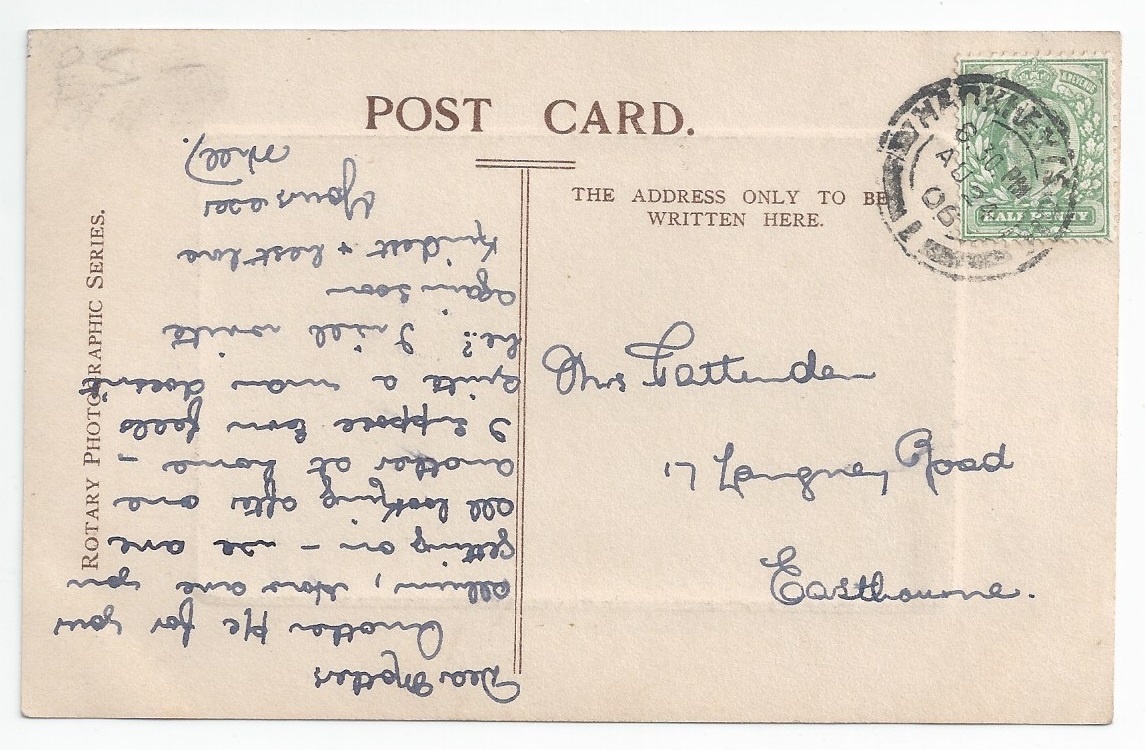 POST CARD.
THE ADDRESS ONLY TO BE
WRITTEN HERE.
ROTARY PHOTOGRAPHIC SERIES.
HACKNEY
8 30 PM
AU
06
HALF PENNY
Mrs Pattenden
17 Langney Road
Eastbourne.
Dear Mother
Another PC for your
album, How are you
getting on - we are
all looking after one
another at home,
I suppose Tom feels
quite a man doesn't
he? I will write
again soon
Kindest & best love
Yours ever
Will).